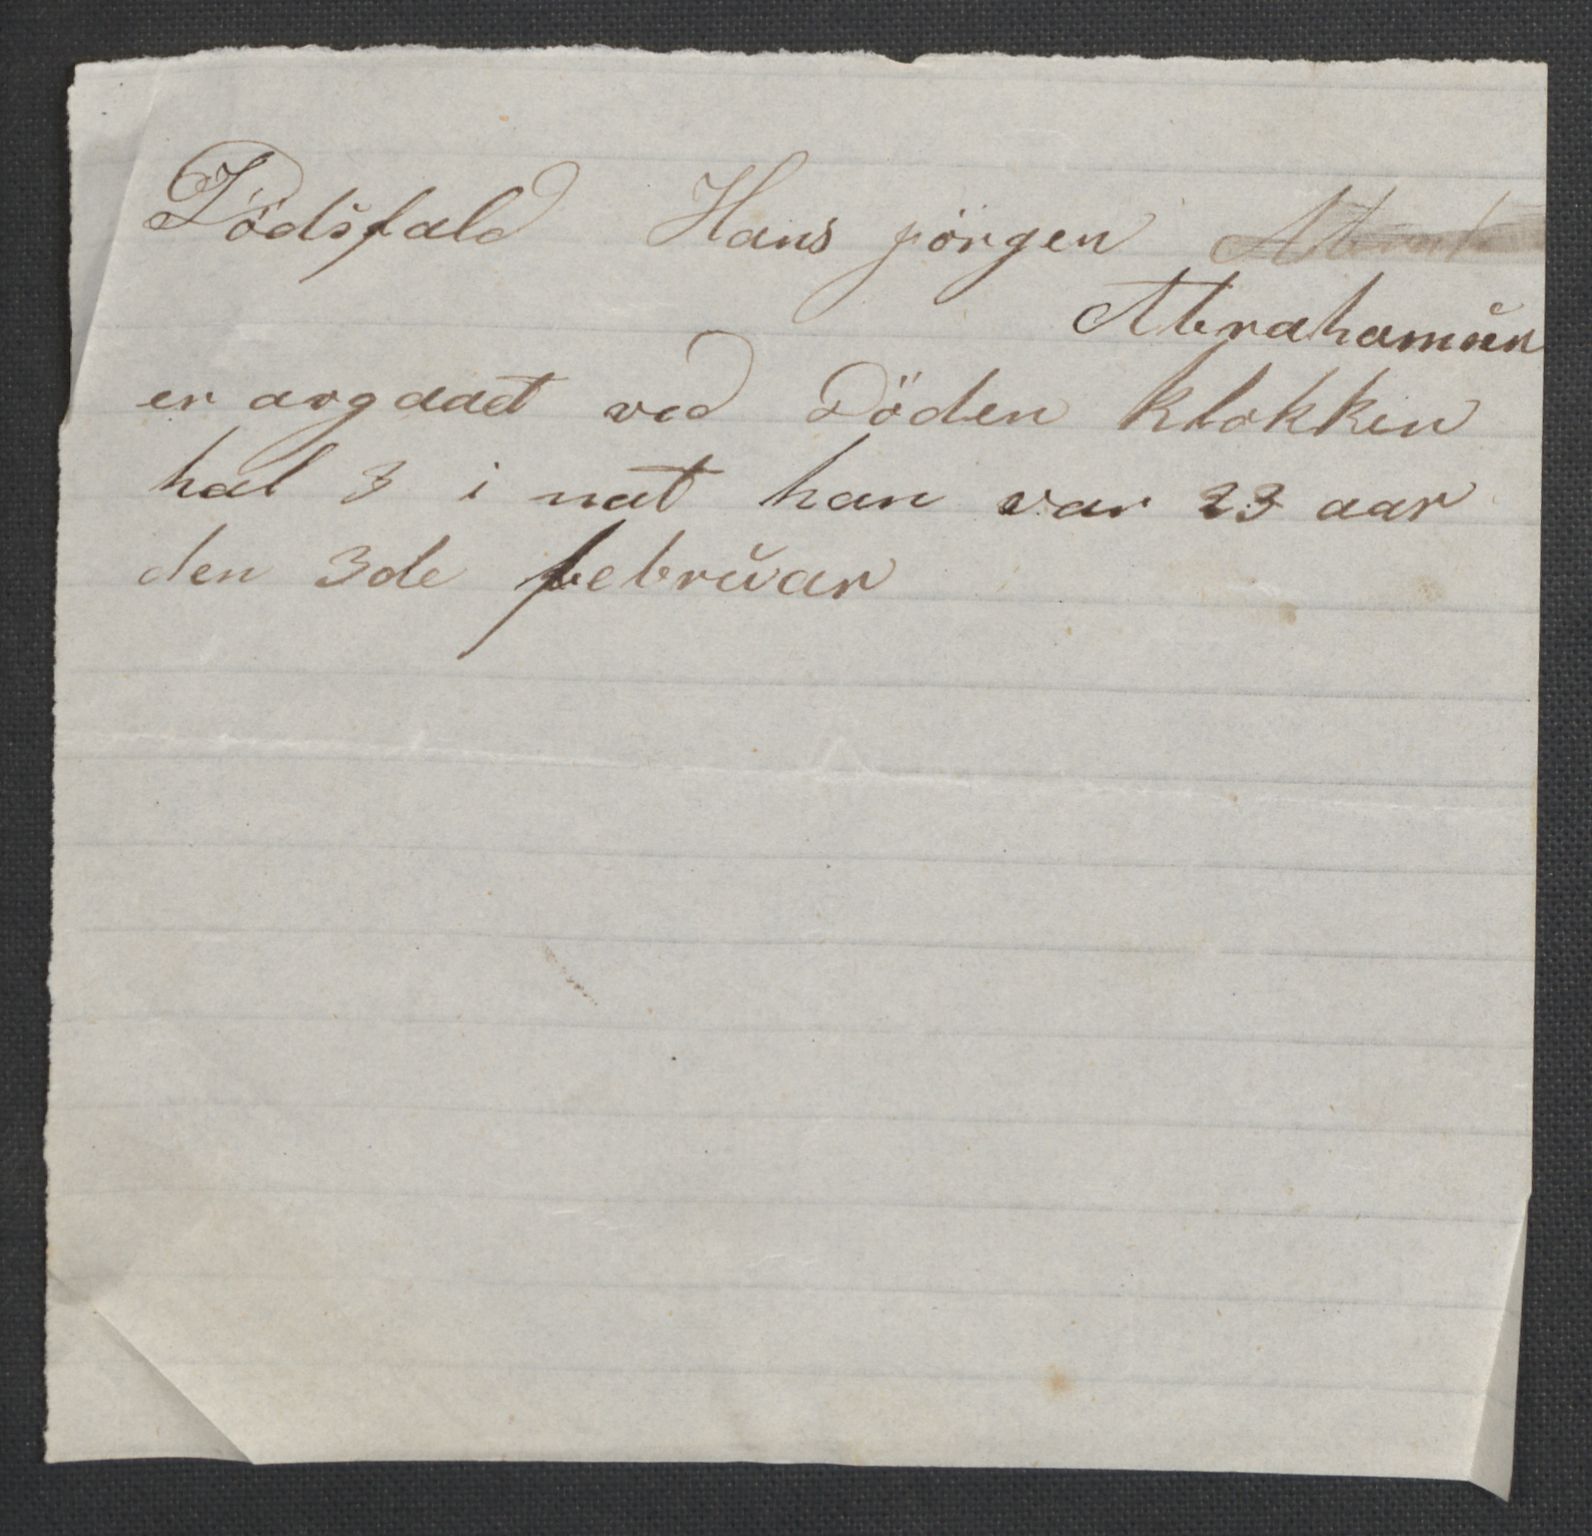 Dödsfald Hans jörgen
Abrahamsen
er avgaaet ved Döden klokken
hal 3 i nat han var 23 aar
den 3de februar